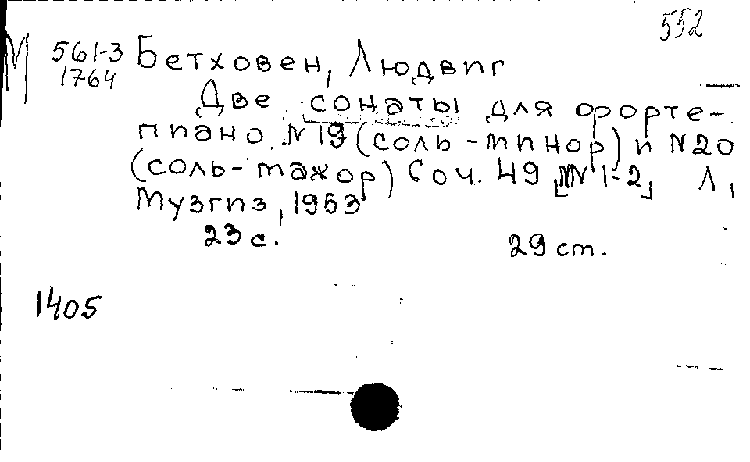 552
М 561-3
1764
Бетховен, Людвиг
Две сонаты для форте-
пиано. N19 (соль-минор) и N20
(соль-мажор) Соч. 49 [NN 1-2] Л,
Музгиз, 1953
23 с.
29 cm.
1405